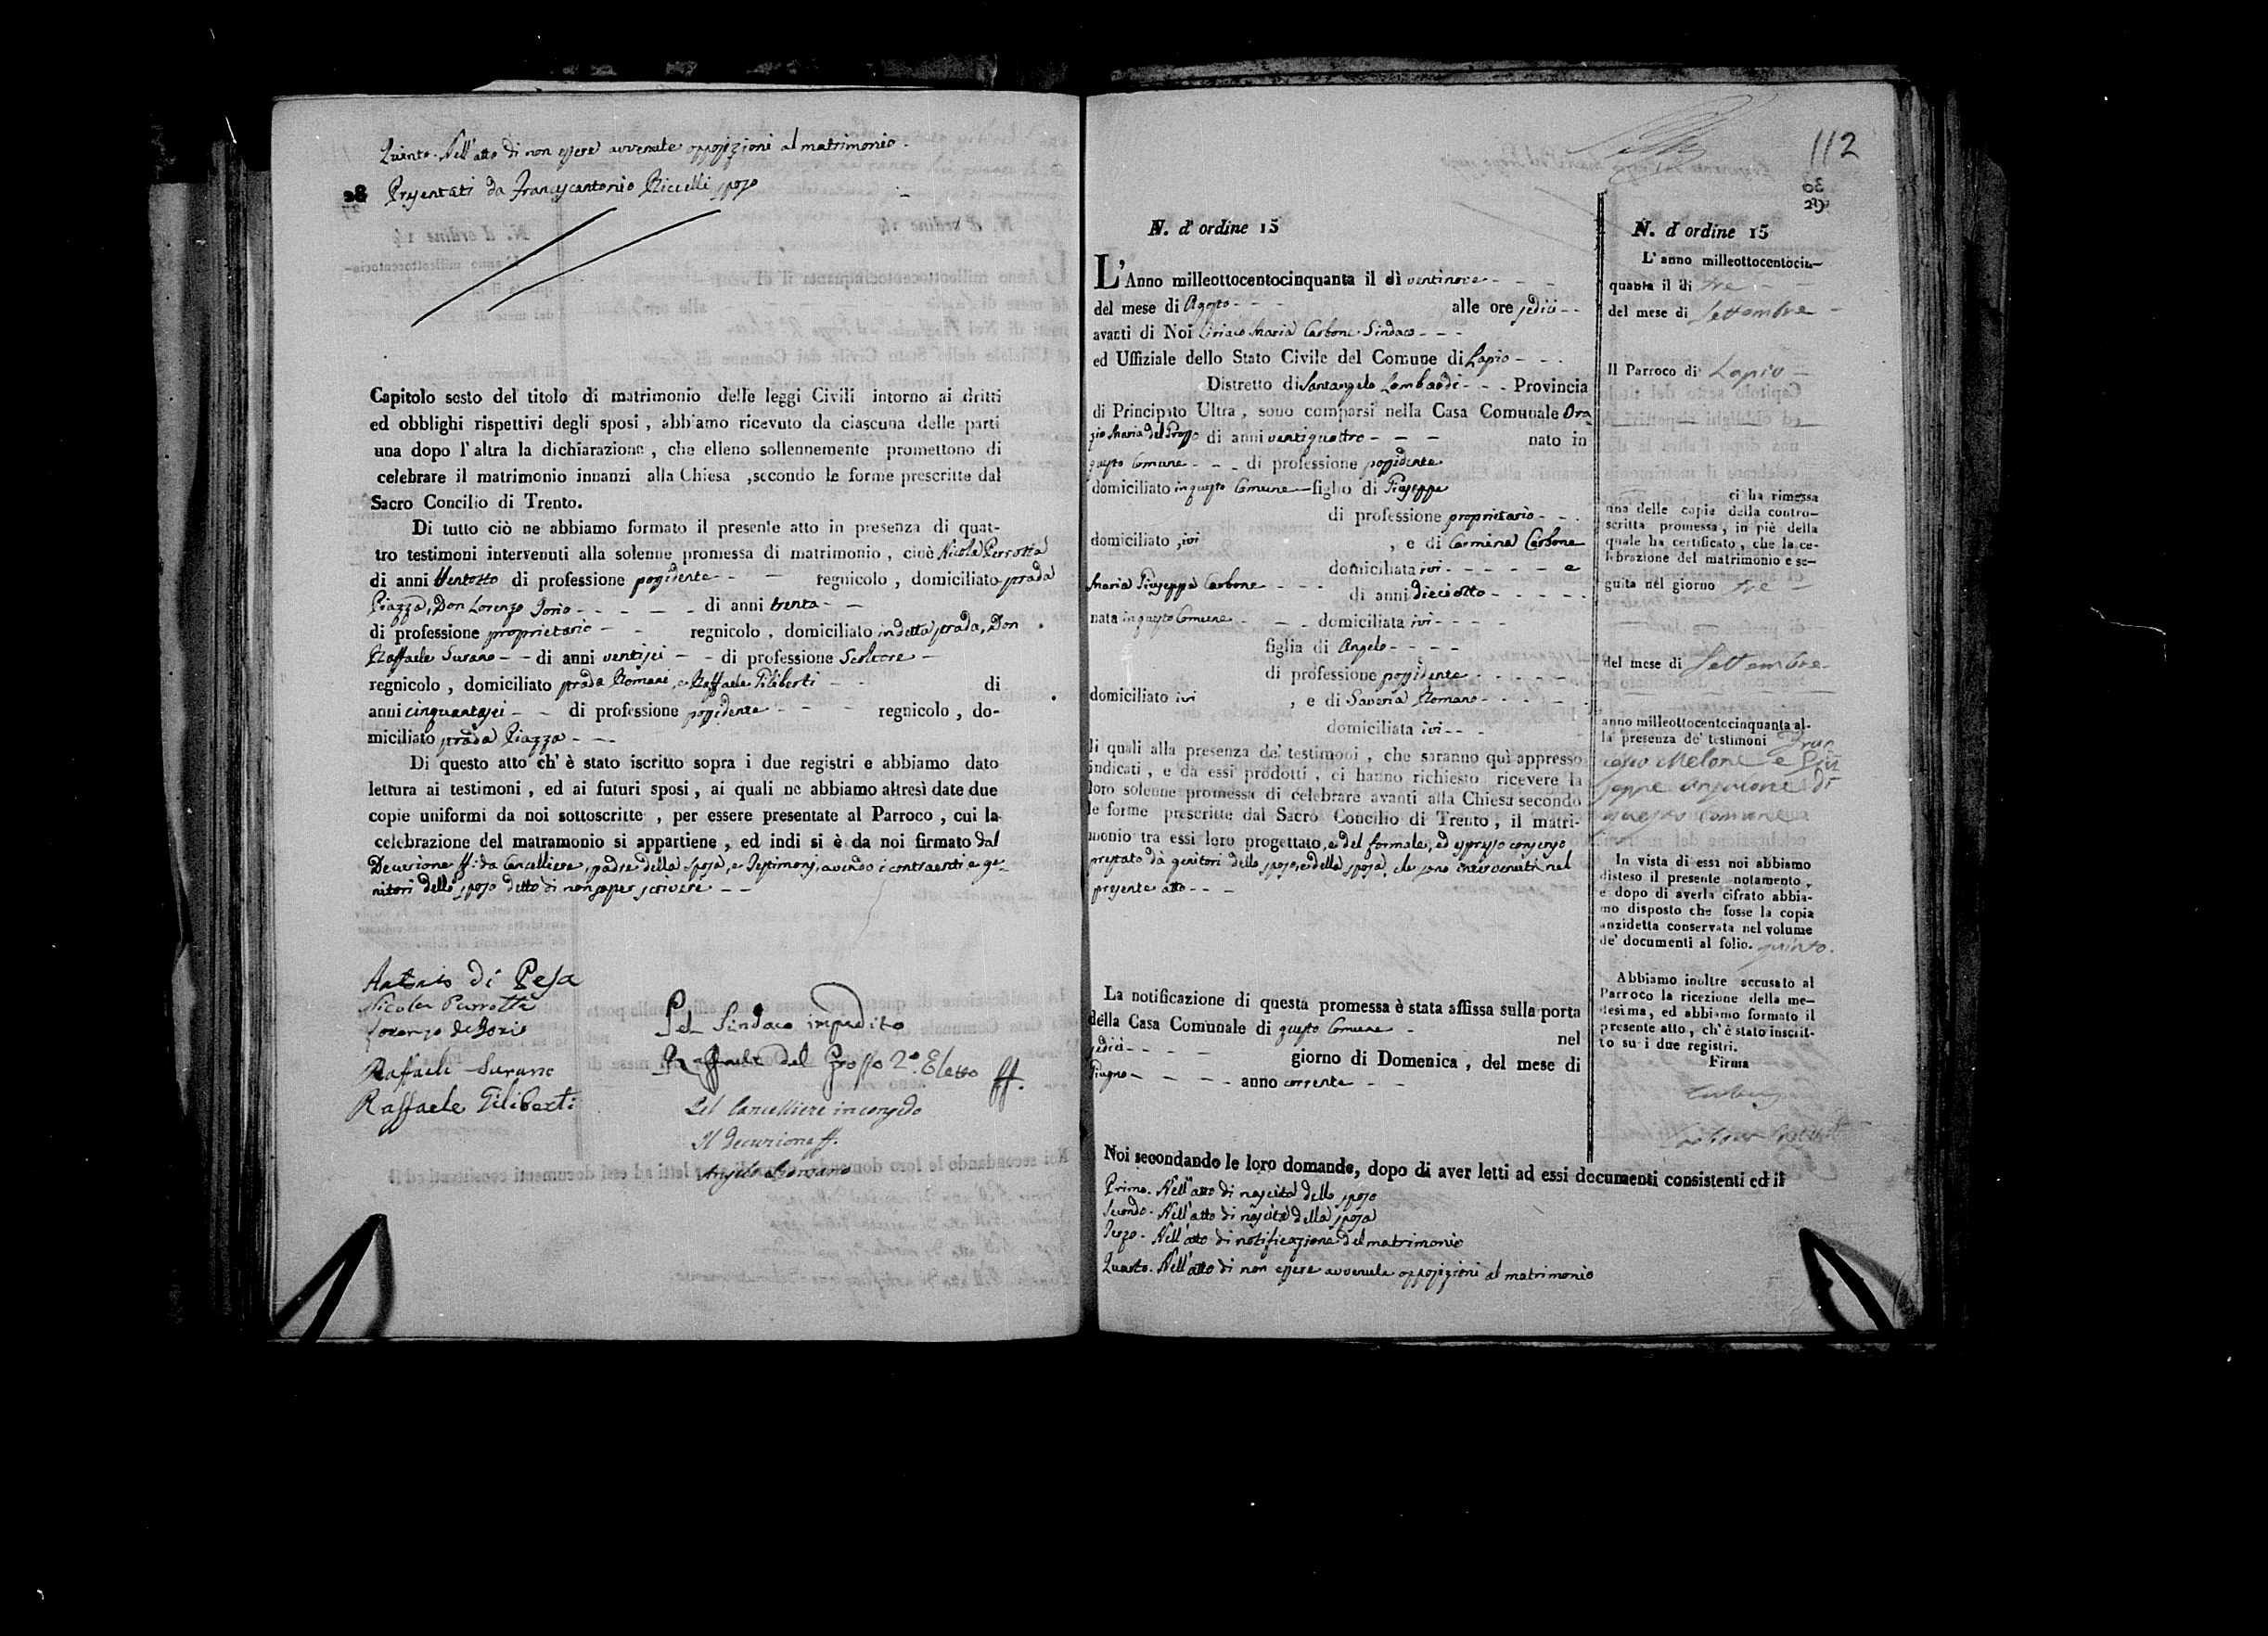 Quinto. Nell'atto di non essere avvenute opposizioni al matrimonio.
28 Presentati da Francescantonio Riccelli sposo
Capitolo sesto del titolo di matrimonio delle leggi Civili intorno ai dritti
ed obblighi rispettivi degli sposi, abbiamo ricevuto da ciascuna delle parti
una dopo l'altra la dichiarazione, che elleno sollennemente promettono di
celebrare il matrimonio innanzi alla Chiesa ,secondo le forme prescritte dal
Sacro Concilio di Trento.
Di tutto ciò ne abbiamo formato il presente atto in presenza di quat-
tro testimoni intervenuti alla solenne promessa di matrimonio, cioè Nicola Perrotta
di anni Ventotto di professione possidente - - regnicolo, domiciliato strada
Piazza, Don Lorenzo Iorio - - - - - di anni trenta - -
di professione proprietario - - regnicolo, domiciliato in detta strada, Don
Raffaele Surano - - di anni ventisei - - di professione Scoltore -
regnicolo, domiciliato strada Romani, e Raffaele Filiberti - - di
anni cinquantasei - - di professione possidente - - - regnicolo, do-
miciliato strada Piazza - - -
Di questo atto ch'è stato iscritto sopra i due registri e abbiamo dato
lettura ai testimoni, ed ai futuri sposi, ai quali ne abbiamo altresì date due
copie uniformi da noi sottoscritte, per essere presentate al Parroco, cui la
celebrazione del matramonio si appartiene, ed indi si è da noi firmato dal
Decurione ff: da Cancelliere, padre della sposa, e Testimonj, avendo i contraenti e ge-
nitori dello sposo detto di non saper scrivere - -
Antonio di Pesa
Nicola Perrotta
Lorenzo de Iorio
Raffaele Surano
Raffaele Filiberti
Pel Sindaco impedito
Raffaele del Grosso 2º Eletto ff.
Pel Cancelliere in congedo
Il Decurione ff.
Angelo
112
30
29
N. d'ordine 15
L'Anno milleottocentocinquanta il dì ventinove - - -
del mese di Agosto - - - alle ore sedici - -
avanti di Noi Ciriaco Maria Carbone Sindaco - - -
ed Uffiziale dello Stato Civile del Comune di Lapio - - -
Distretto di Santangelo Lombardi - - - Provincia
di Principato Ultra, sono comparsi nella Casa Comunale Ora
zio Maria del Grosso di anni ventiquattro - - - nato in
questo Comune - - - di professione possidente
domiciliato in questo Comune - figlio di Giuseppe
di professione proprietario - - -
domiciliato ,ivi , e di Carmina Carbone
domiciliata ivi - - - - - e
Maria Giuseppa Carbone - - - di anni dieciotto - - - - -
nata in questo Comune - - - domiciliata ivi - - - -
figlia di Angelo - - - -
di professione possidente - - - - -
domiciliato ivi , e di Saveria Romano - - - - -
domiciliata ivi - - -
li quali alla presenza de' testimoni, che saranno quì appresso
indicati, e da essi prodotti, ci hanno richiesto ricevere la
loro solenne promessa di celebrare avanti alla Chiesa secondo
le forme prescritte dal Sacro Concilio di Trento, il matri-
monio tra essi loro progettato, e del formale, ed espresso consenso
prestato da genitori dello sposo, e della sposa, che sono intervenuti nel
presente atto - - -
La notificazione di questa promessa è stata affissa sulla porta
della Casa Comunale di questo Comune - nel
sedici - - - - giorno di Domenica, del mese di
Giugno - - - - anno corrente - -
Noi secondando le loro domande, dopo di aver letti ad essi documenti consistenti ed il
Primo. Nell'atto di nascita dello sposo
Secondo. Nell'atto di nascita della sposa
Terzo. Nell'atto di notificazione del matrimonio
Quarto. Nell'atto di non essere avvenute opposizioni al matrimonio
N. d'ordine 15
L'anno milleottocentocin-
quanta il dì tre - -
del mese di Settembre -
Il Parroco di Lapio -
ci ha rimessa
una delle copie della contro-
scritta promessa, in piè della
quale ha certificato, che la ce-
lebrazione del matrimonio e se-
guita nel giorno tre -
del mese di Settembre -
anno milleottocentocinquanta al-
la presenza de' testimoni Fran
cesco Melone e Giu
seppe di
questo Comune
In vista di essi noi abbiamo
disteso il presente notamento,
e dopo di averla cifrato abbia-
mo disposto che fosse la copia
anzidetta conservata nel volume
de' documenti al folio. quinto.
Abbiamo inoltre accusato al
Parroco la ricezione della me-
desima, ed abbiamo formato il
presente atto, ch'è stato inscrit-
to su i due registri.
Firma